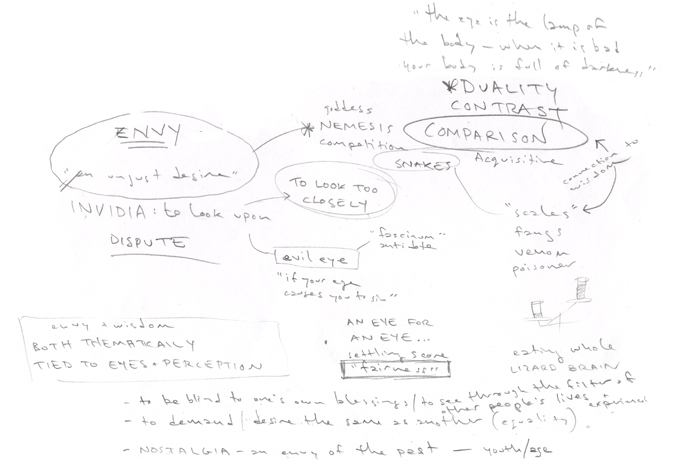 "the eye is the lamp of
the body – when it is bad
your body is full of darkness"
*DUALITY
CONTRAST
COMPARISON
Acquisitive
goddess
*NEMESIS
competition
ENVY
"an unjust desire"
INVIDIA: to look upon
DISPUTE
SNAKES
TO LOOK TOO
CLOSELY
connection to
wisdom
"scales"
fangs
venom
poisoner
"fascinum"
antidote
evil eye
"if your eye
causes you to sin"
envy + wisdom
BOTH THEMATICALLY
TIED TO EYES + PERCEPTION
AN EYE FOR
AN EYE...
settling score
"fairness"
eating whole
LIZARD BRAIN
- to be blind to one's own blessings / to see through the filter of
other people's lives + experience
- to demand / desire the same as another (equality).
- NOSTALGIA - an envy of the past — youth/age